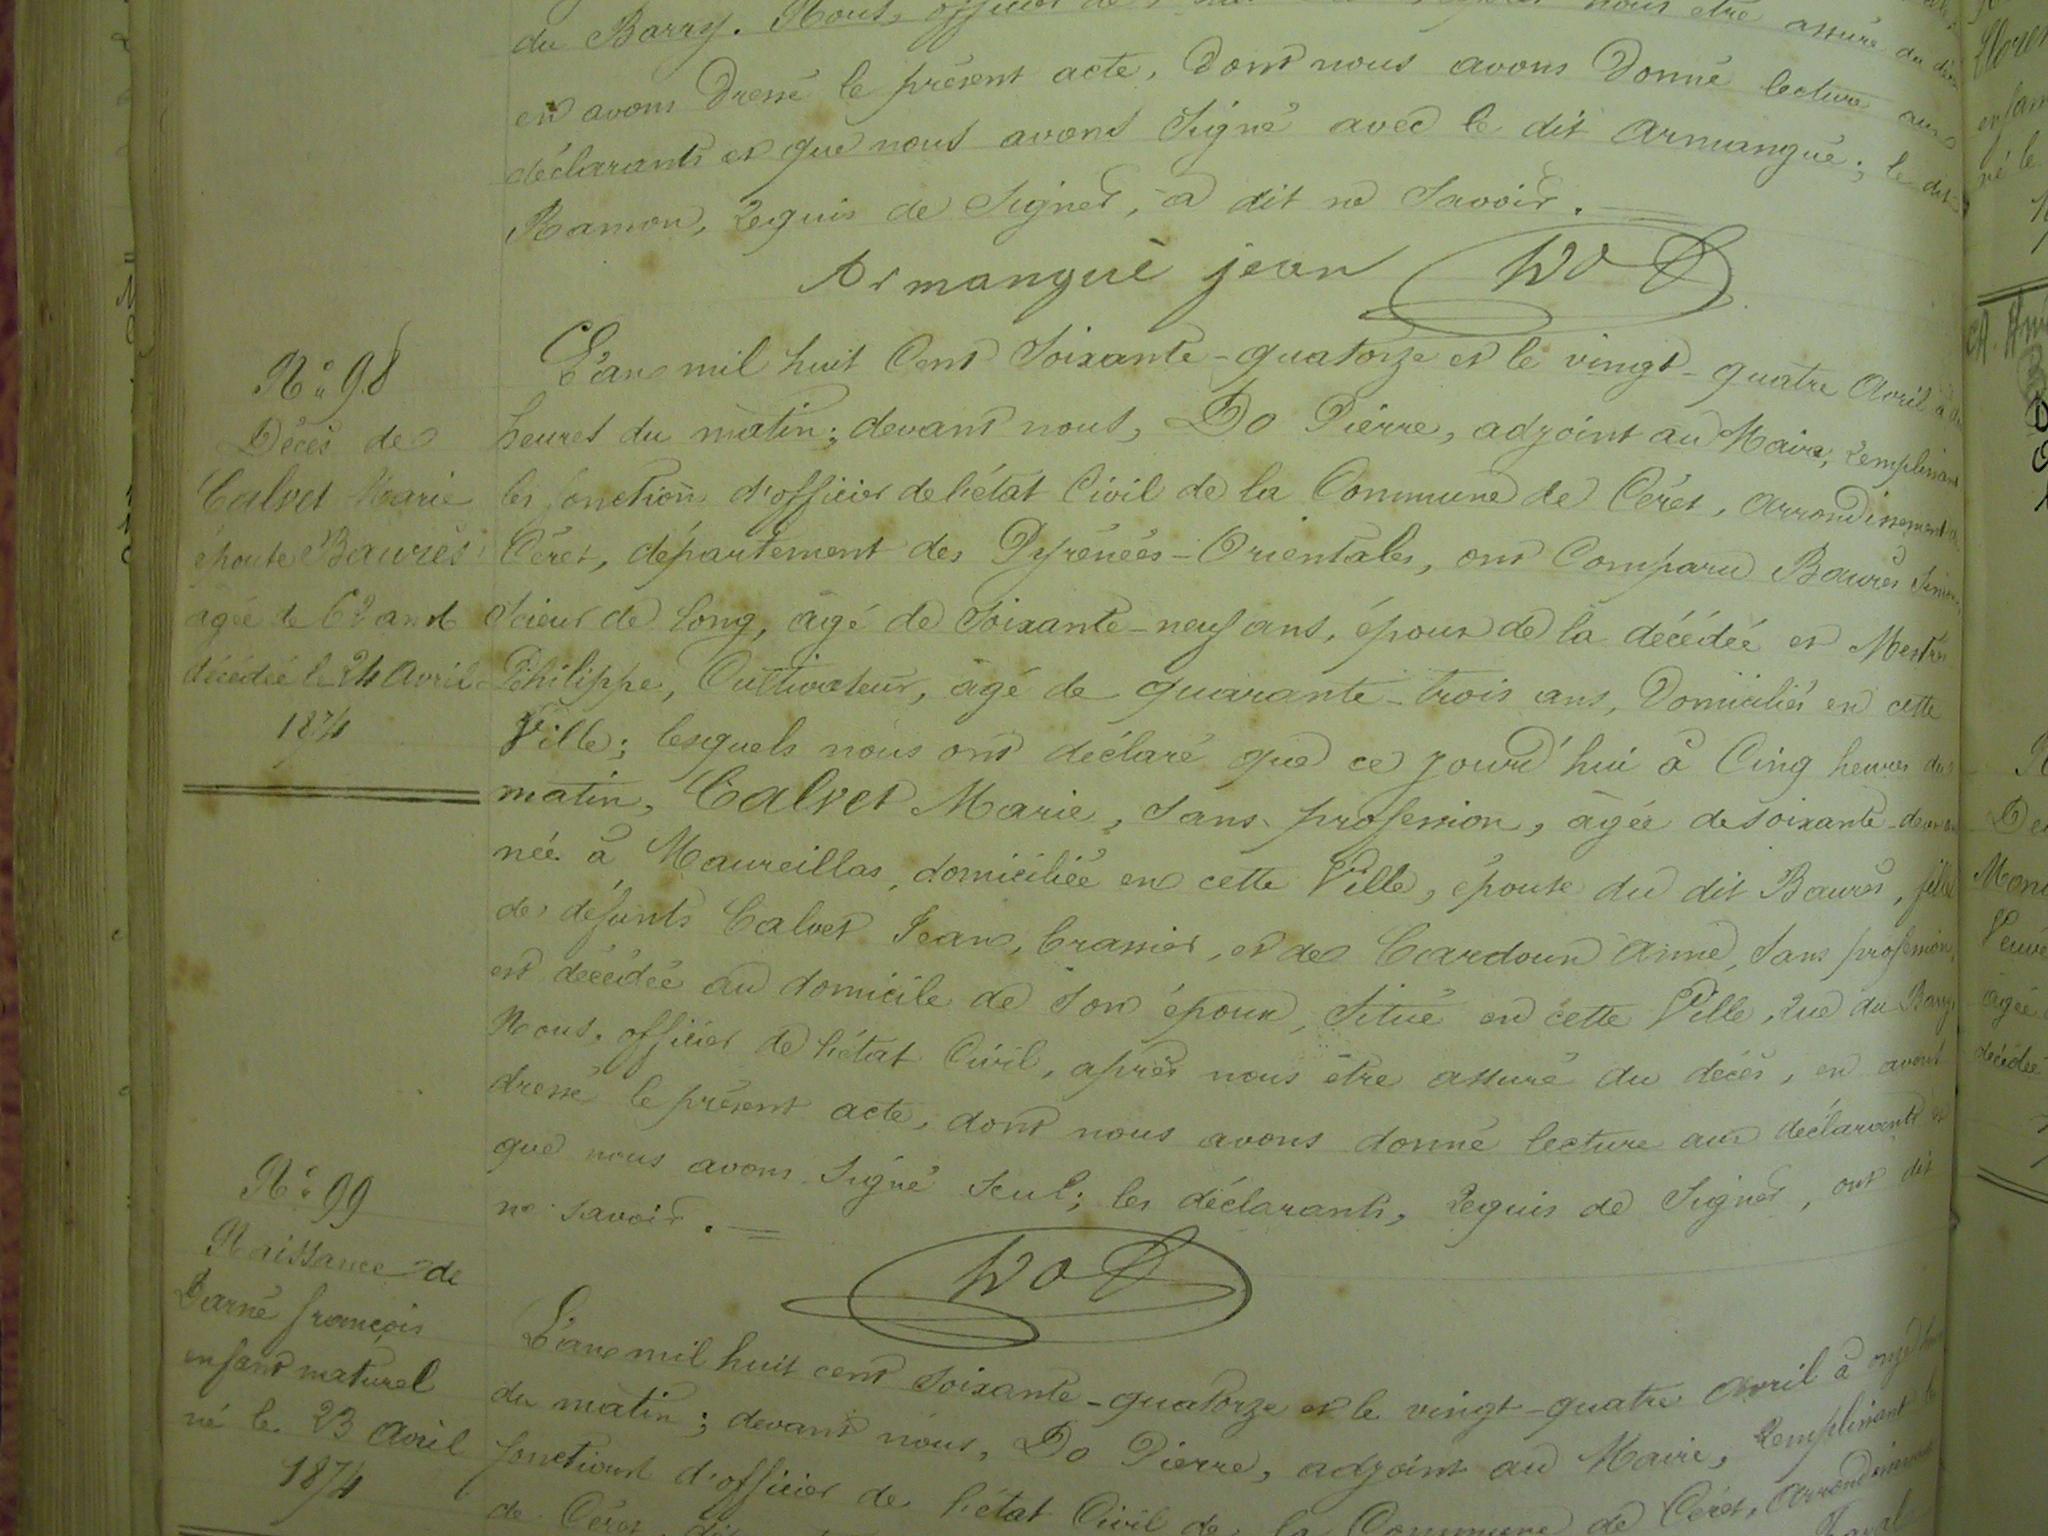 du Barry. Nous, officier de nous être assuré du
en avons dressé le présent acte, dont nous avons donné lecture aux
déclarants et que nous avons signé avec le dit Armangué; le dit
Ramon, requis de signer, a dit ne savoir.
Armanguè jean Do P
N° 98
Décès de
Calvet Marie
épouse Baurès
âgée de 62 ans
décédée le 24 Avril
1874
L'an mil huit cent soixante-quatorze et le vingt-quatre Avril à
heures du matin; devant nous, Do Pierre, adjoint au Maire, remplissant
les fonctions d'officier de l'état Civil de la Commune de Céret, arrondissement de
Céret, département des Pyrénées-Orientales, ont Comparu Baurès
scieur de long, âgé de soixante-neuf ans, époux de la décédée et Mestres
Philippe, Cultivateur, âgé de quarante-trois ans, Domiciliés en cette
Ville; lesquels nous ont déclaré que ce jourd'hui à Cinq heures du
matin, Calvet Marie, sans profession, âgée de soixante-deux ans
née à Maureillas, domiciliée en cette Ville, épouse du dit Baurès, fille
de défunts Calvet Jean, brassier, et de Cardoun Anne, sans profession,
est décédée au domicile de son époux, situé en cette Ville, rue du Barry
Nous, officier de l'état Civil, après nous être assuré du décès, en avons
dressé le présent acte, dont nous avons donné lecture aux déclarants et
que nous avons signé seul; les déclarants, requis de signer, ont dit
ne savoir.
Do P
N° 99
Naissance de
Darné françois
enfant naturel
né le 23 Avril
1874
L'an mil huit cent soixante-quatorze et le vingt-quatre Avril à onze heures
du matin; devant nous, Do Pierre, adjoint au Maire, remplissant les
fonctions d'officier de l'état Civil de la Commune de Céret, arrondissement
de Céret,